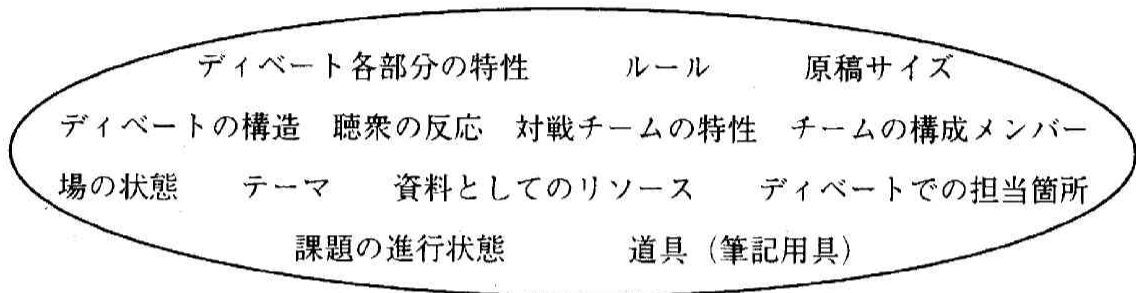 ディベート各部分の特性 ルール 原稿サイズ
ディベートの構造 聴衆の反応 対戦チームの特性 チームの構成メンバー
場の状態 テーマ 資料としてのリソース ディベートでの担当箇所
課題の進行状態 道具（筆記用具）